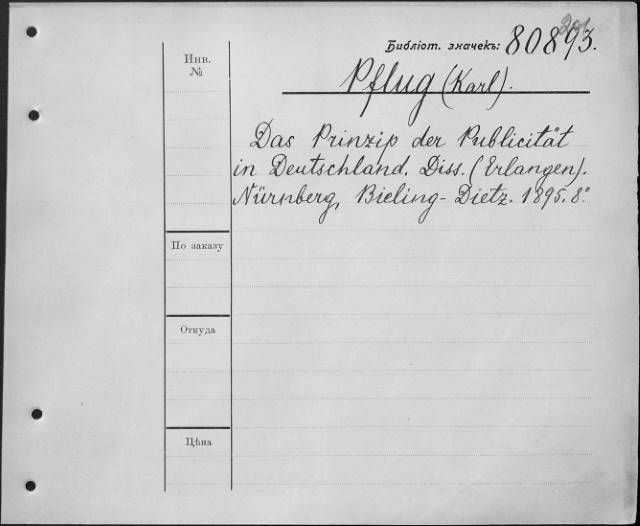 Библіот. значекъ: 80893.
Инв.
№
Pflug (Karl).
Das Prinzip der Publicität
in Deutschland. Diss. (Erlangen).
Nürnberg, Bieling-Dietz. 1895. 8°
По заказу
Откуда
Цѣна